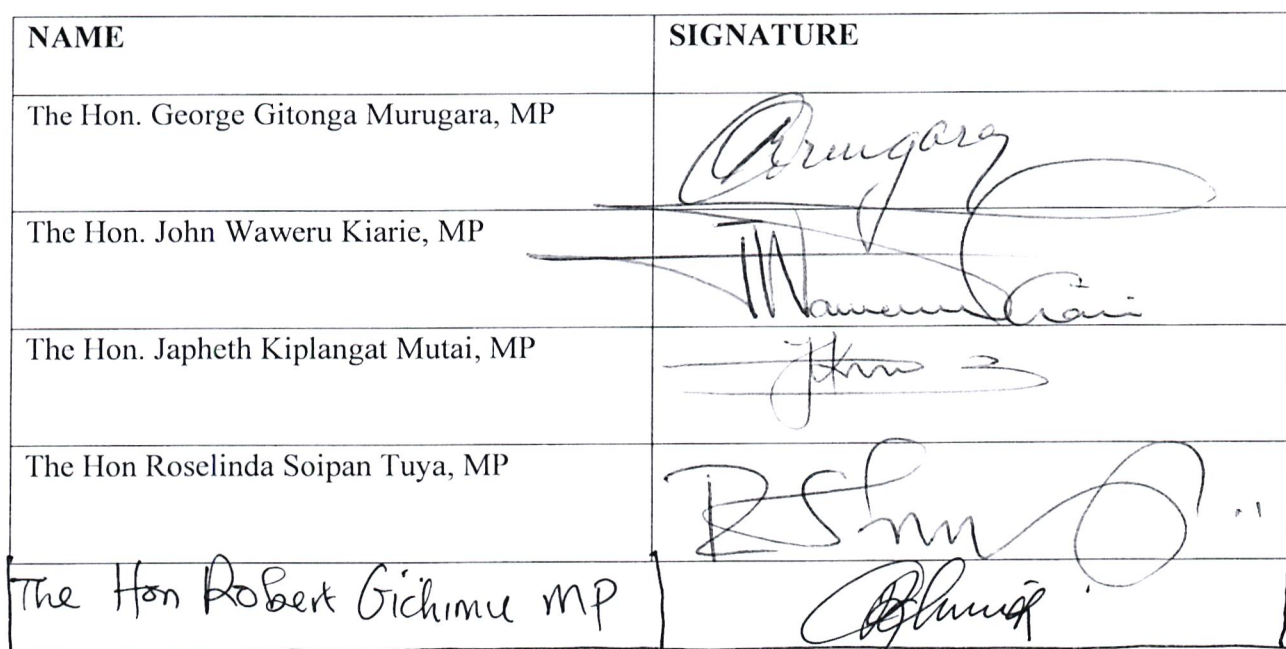 NAME SIGNATURE
The Hon. George Gitonga Murugara, MP
The Hon. John Waweru Kiarie, MP
The Hon. Japheth Kiplangat Mutai, MP
The Hon Roselinda Soipan Tuya, MP
The Hon Robert Gichimu MP